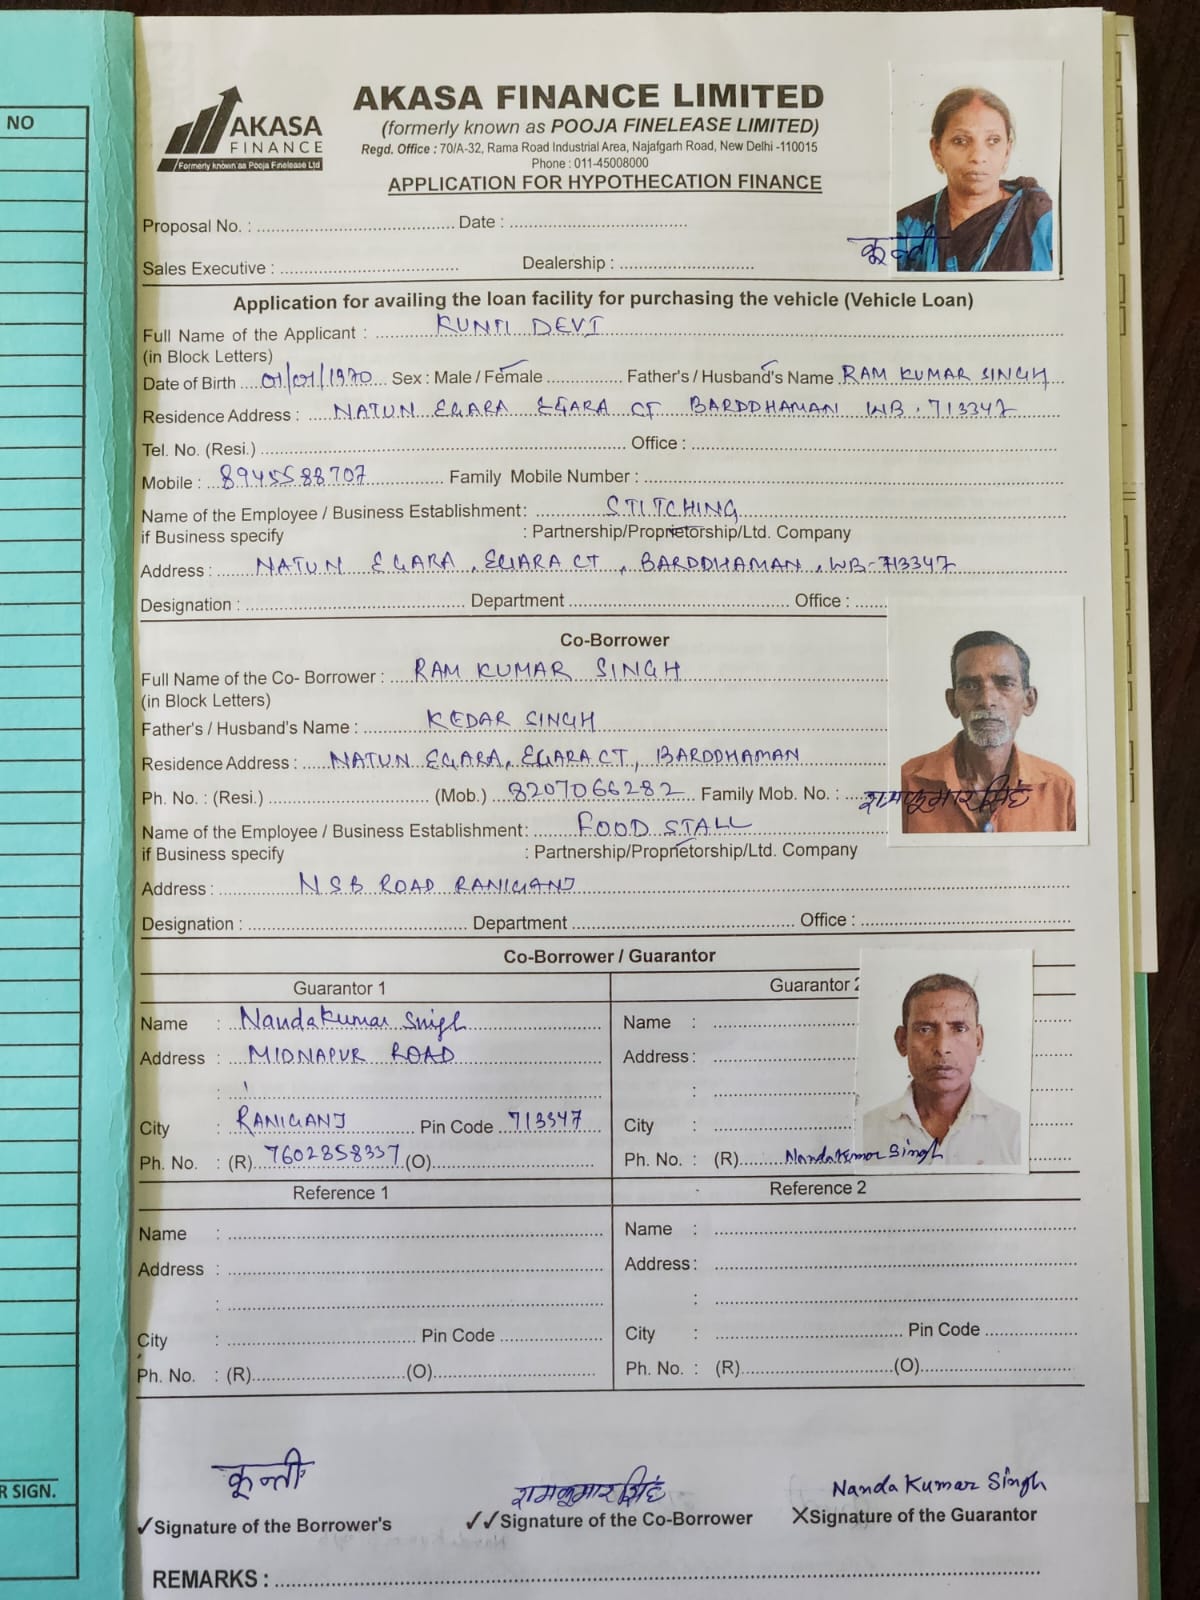 NO
AKASA
FINANCE
Formerly known as Pooja Finelease Ltd
AKASA FINANCE LIMITED
(formerly known as POOJA FINELEASE LIMITED)
Regd. Office : 70/A-32, Rama Road Industrial Area, Najafgarh Road, New Delhi -110015
Phone : 011-45008000
APPLICATION FOR HYPOTHECATION FINANCE
Proposal No. : Date :
कून्ती
Sales Executive : Dealership :
Application for availing the loan facility for purchasing the vehicle (Vehicle Loan)
Full Name of the Applicant : KUNTI DEVI
(in Block Letters)
Date of Birth 01/01/1970 Sex : Male / Female Father's / Husband's Name RAM KUMAR SINGH
Residence Address : NATUN EGARA EGARA CT BARDDHAMAN WB. 713347
Tel. No. (Resi.) Office :
Mobile : 8945588707 Family Mobile Number :
Name of the Employee / Business Establishment: STITCHING
if Business specify : Partnership/Proprietorship/Ltd. Company
Address : NATUN EGARA, EGARA CT, BARDDHAMAN, WB-713347
Designation : Department Office :
Co-Borrower
Full Name of the Co- Borrower : RAM KUMAR SINGH
(in Block Letters)
Father's / Husband's Name : KEDAR SINGH
Residence Address : NATUN EGARA, EGARA CT, BARDDHAMAN
Ph. No. : (Resi.) (Mob.) 8207066282 Family Mob. No. : रामकुमार सिंह
Name of the Employee / Business Establishment: FOOD STALL
if Business specify : Partnership/Proprietorship/Ltd. Company
Address : NSB ROAD RANIGANJ
Designation : Department Office :
Co-Borrower / Guarantor
Guarantor 1 Guarantor 2
Name : Nandakumar Singh Name :
Address : MIDNAPUR ROAD Address :
: :
City : RANIGANJ Pin Code 713347 City :
Ph. No. : (R) 7602858337 (O) Ph. No. : (R) Nandakumar Singh
Reference 1 Reference 2
Name : Name :
Address : Address :
: :
City : Pin Code City : Pin Code
Ph. No. : (R) (O) Ph. No. : (R) (O)
कून्ती रामकुमार सिंह Nanda Kumar Singh
R SIGN.
✓Signature of the Borrower's ✓✓Signature of the Co-Borrower XSignature of the Guarantor
REMARKS :